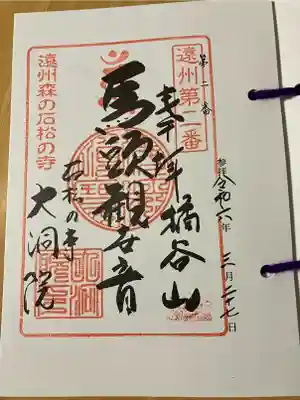 第二番
遠州第二番
奉拝 橘谷山
馬頭観世音
石松の寺
大洞院
遠州森の石松の寺
参拝 令和六年 三月二十七日